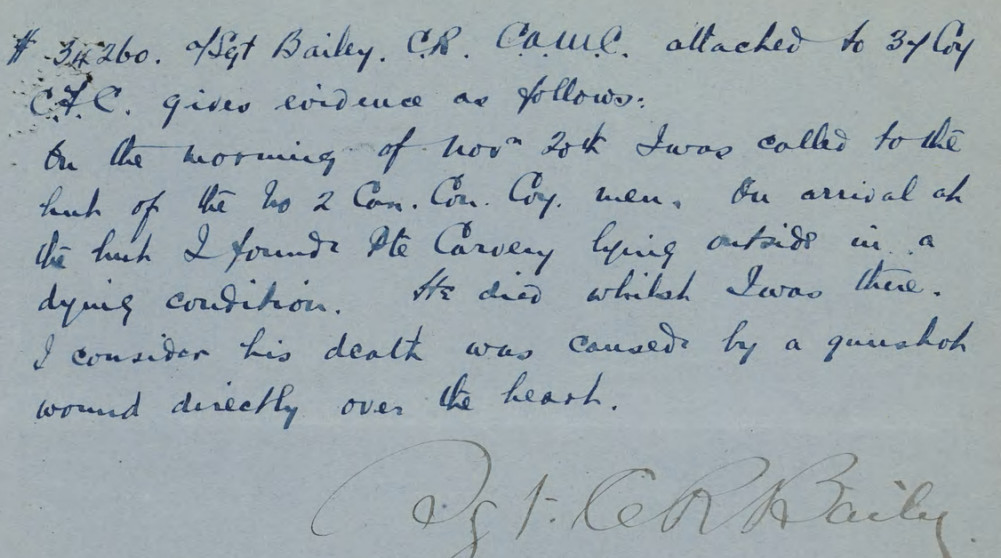 # 34260. a/Sgt Bailey. C.R. C.A.M.C. attached to 37 Coy
C.F.C. gives evidence as follows:
On the morning of Novr 20th I was called to the
hut of the No 2 Can. Con. Coy. men. On arrival at
the hut I found Pte Carvery lying outside in a
dying condition. He died whilst I was there.
I consider his death was caused by a gunshot
wound directly over the heart.
Sgt. C R Bailey.